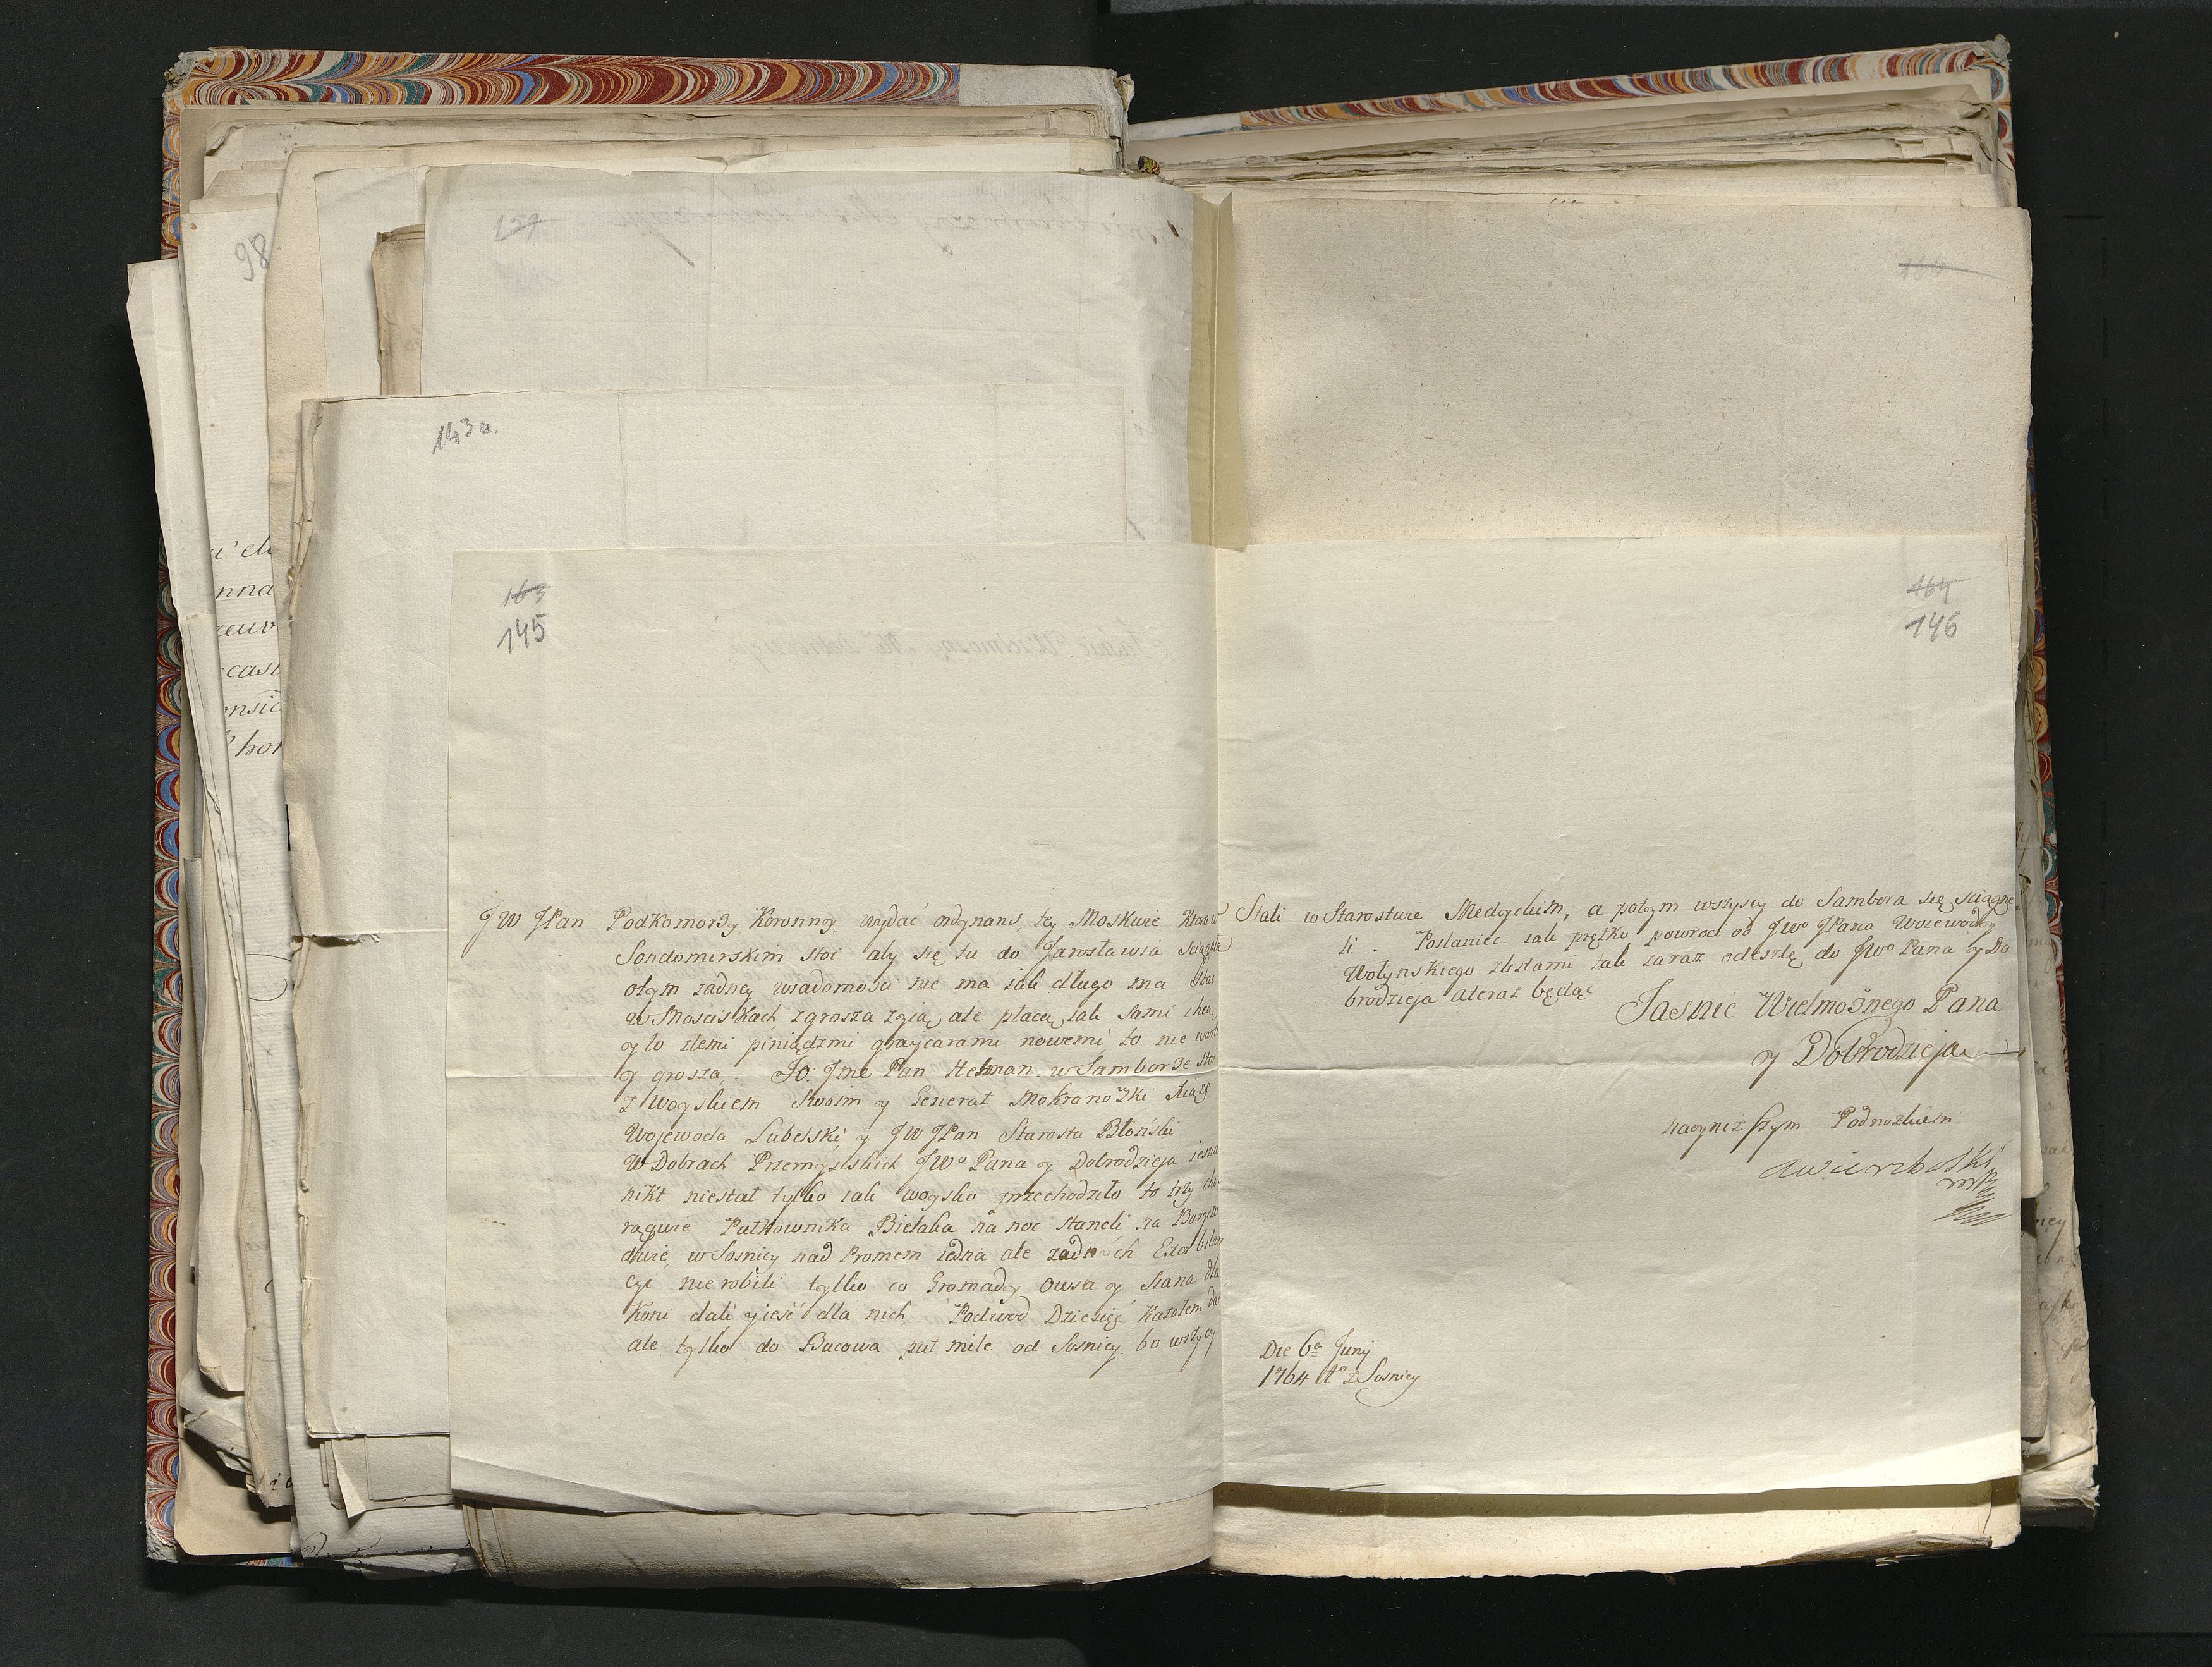 98
159
143a
163
145
JW JPan Podkomorzy Koronny, wydać ordynans, tey Moskwie ktora w
Sondomirskim stoi aby się tu do Jarosławia sciągała
otym zadney wiadomosci nie ma iak długo ma stac
w Mosciskach zgrosza zyią, ale płacą iak sami chcą
y to złemi piniądzmi graycarami nowemi to nie warte
y grosza. Jo: Jme Pan Hetman w Samborze stoi
z Woyskiem swoim y Generał Mokranoski Xiąże
Wojewoda Lubelski, y JW JPan Starosta Błoński
W Dobrach Przemyslskich JWo Pana y Dobrodzieja
nikt niestał tylko iak woysko przechodziło to trzy cho-
rągwie Pułkownika Bielaka na noc staneli na
dwie, w Sosnicy nad Promem iedna ale zadnych Exorbitan
cyi nie robili tylko co Gromady owsa y siana dla
Koni dali y ieść dla nich, Podwod Dziesięć kazałem dać
ale tylko do Bucowa puł mile od Sosnicy. bo wszyscy
164
146
Stali w Starostwie Medyckim, a potym wszyscy do Sambora się sciągne-
li. Posłaniec iak prętko powroci od JWo JPana Wojewody
Wołynskiego zlistami tak zaraz odeszlę do JWo Pana y Do
brodzieja ateraz będąc
Jasnie Wielmożnego Pana
y Dobrodzieja
nayniższym Podnożkiem
Die 6a Juny
1764 Ao z Sosnicy